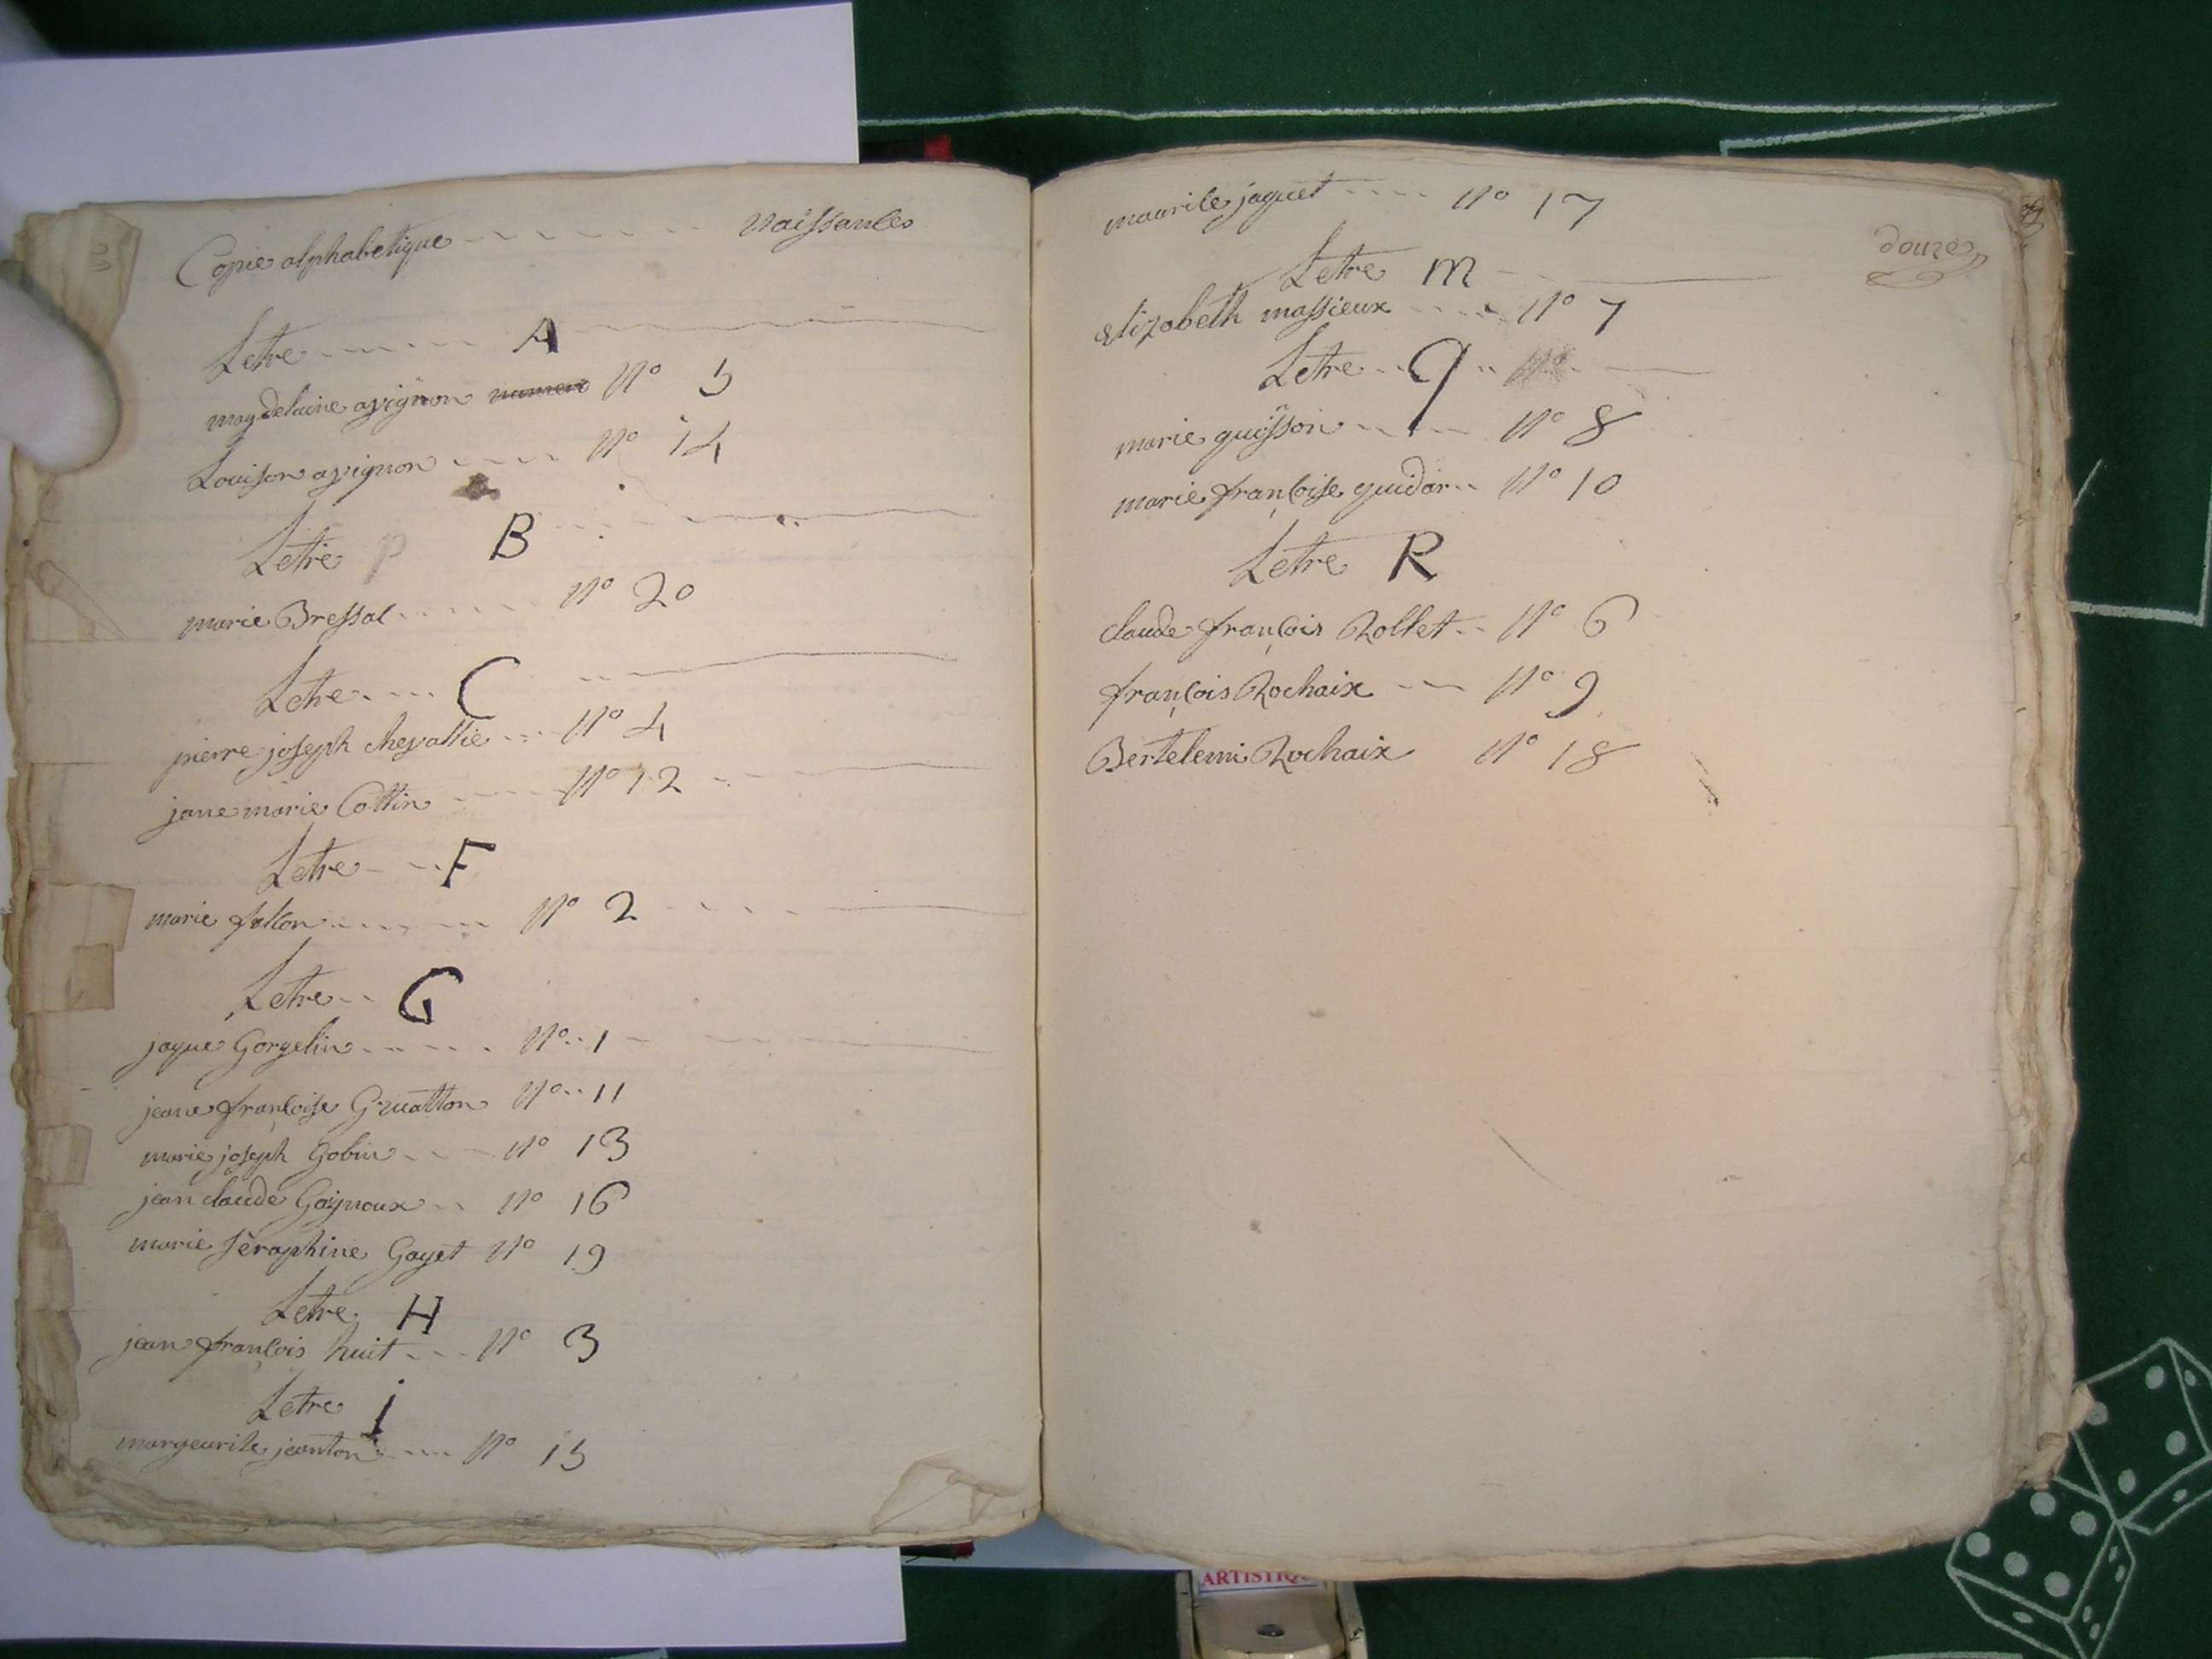 Copie alphabetique - - - - - - - naissances
Letre - - - - - - A
magdelaine avignon numero N° 5
Louison avignon - - - - N° 14
Letre B
marie Bressal - - - - - - N° 20
Letre - - - C
pierre joseph chevallie - - - N° 4
jane marie Cottin - - - - N° 12
Letre - - - F
marie falcon - - - - - - N° 2
Letre - - G
jaque Gorgelin - - - - - N° - 1
jeane françoise Gruatton N° - - 11
marie joseph Gobin - - - N° 13
jean claude Gaignoux - - N° 16
marie séraphine Gayet N° 19
Letre H
jean françois huit - - - N° 3
Letre i
margeurite jeanton - - - N° 15
maurite jaquet - - - - N° 17
douze
Letre m
Elizabeth massieux - - - - N° 7
Letre - - q - - N°
marie quisson - - - - N° 8
marie françoise quidar - - N° 10
Letre R
claude françois Rollet - - N° 6
françois Rochaix - - - N° 9
Bertelemi Rochaix N° 18
ARTISTIQU